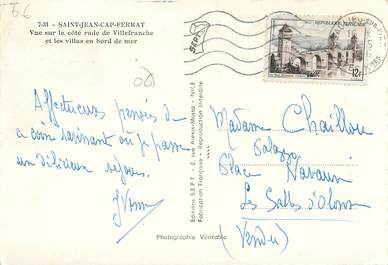 06
7-31 - SAINT-JEAN-CAP-FERRAT
Vue sur le côté rade de Villefranche
et les villas en bord de mer
06
Affectueuses pensées de
ce coin ravissant où je passe
un délicieux séjour.
Yvonne
Editions S.E.P.T - 2, rue Alexis-Mossa - NICE
Fabrication Française - Reproduction Interdite
Photographie Véritable
REPUBLIQUE FRANÇAISE
12F
Madame Chaillou
Place Navarin
Les Sables d'Olonne
(Vendée)